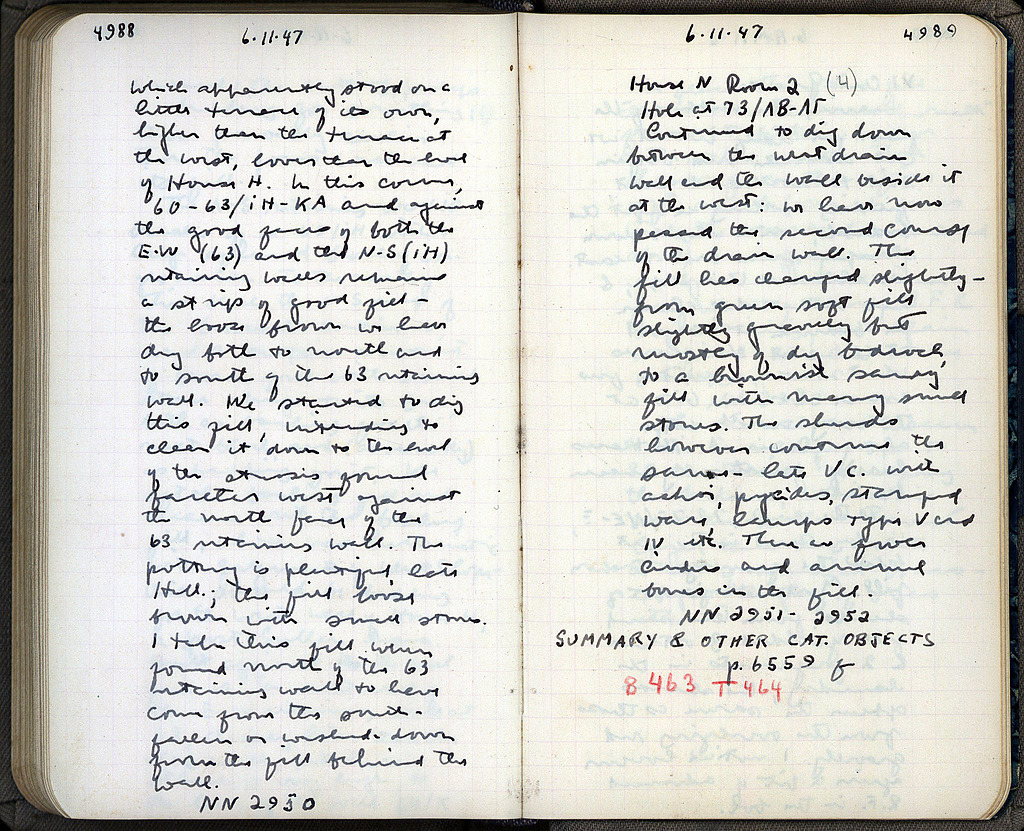 4988
6·11·47
which apparently stood on a
little terrace of its own,
higher than the terrace at
the west, lower than the level
of House H. In this corner,
60-63/ІΗ-ΚΑ and against
the good faces of both the
E-W (63) and the N-S (ІΗ)
retaining walls remains
a strip of good fill -
the loose brown we have
dug both to north and
to south of the 63 retaining
wall. We started to dig
this fill, intending to
clear it down to the level
of the stereo found
farther west against
the north face of the
63 retaining wall. The
pottery is plentiful, late
Hell.; the fill loose
brown with small stones.
I take this fill when
found north of the 63
retaining wall to have
come from the south -
fallen or washed down
from the fill behind the
wall.
NN 2950
6·11·47
4989
House N Room 2 (4)
Hole at 73/ΛΒ-ΛΓ
Continued to dig down
between the west drain
wall and the wall beside it
at the west: we have now
passed the second course
of the drain wall. The
fill has changed slightly -
from green soft fill
slightly gravelly but
mostly of dug bedrock,
to a brownish sandy
fill with many small
stones. The sherds
however continue the
same - late V c. with
askoi, pyxides, stamped
ware, lamps type V and
IV etc. There are fewer
cinders and animal
bones in the fill.
NN 2951 - 2952
SUMMARY & OTHER CAT. OBJECTS
p. 6559 f
8 463 T 464